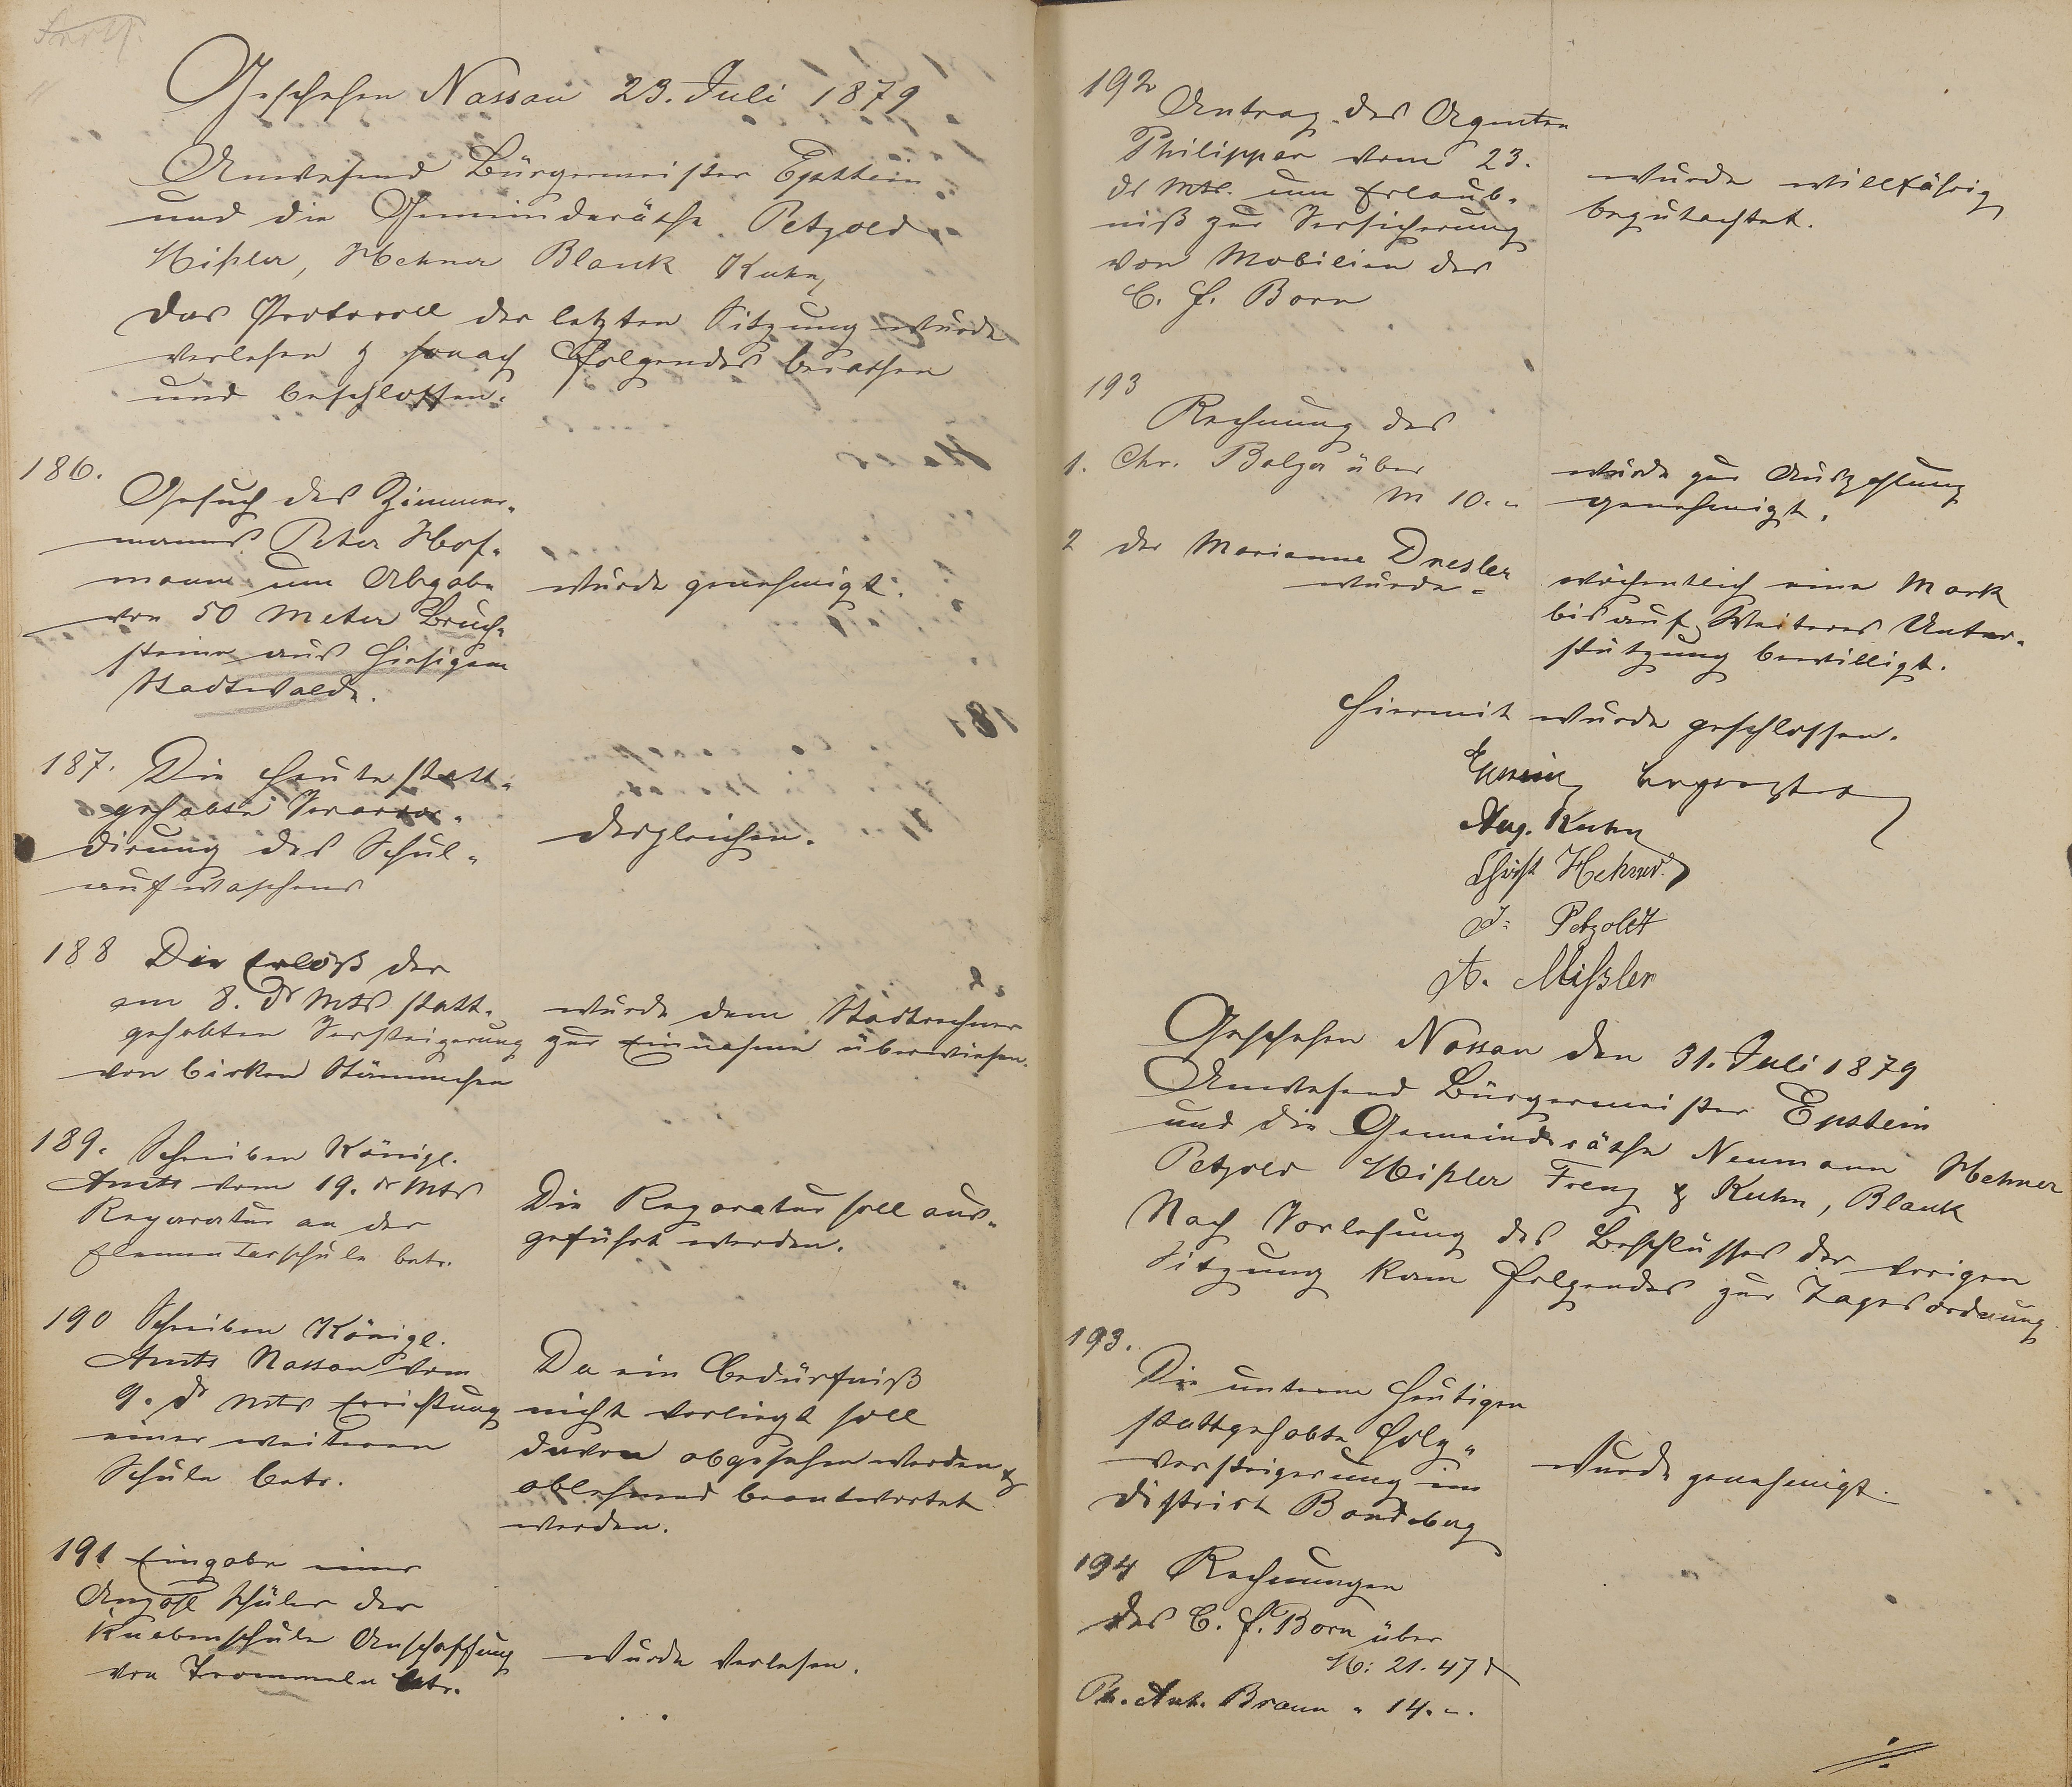 Geschehen Nassau 23. Juli 1879
Anwesend Bürgermeister Epstein
und die Gemeinderäthe Petzold
Mißler, Hehner Blank Kuhn
Das Protocoll der letzten Sitzung wurde
verlesen & sonach folgendes berathen
und beschlossen.
186.
Gesuch des Zimmer-
manns Peter Hof-
mann um Abgabe
von 50 Meter Bruch-
steine aus hiesigem
Stadtwalde.
wurde genehmigt.
187. Die heute statt-
gehabte Veraccor-
dirung des Schul-
aufwaschens
desgleichen.
188 Der Erlöß der
am 8. ds Mts statt-
gehabten Versteigerung
von birken Stämmchen
wurde dem Stadtrechner
zur Einnahme überwiesen.
189. Schreiben Königl.
Amts vom 19. ds Mts
Reparatur an der
Elementarschule betr.
Die Reparatur soll aus-
geführt werden.
190 Schreiben Königl.
Amts Nassau vom
9. ds Mts Errichtung
einer weiteren
Schule betr.
Da ein Bedürfniß
nicht vorliegt soll
davon abgesehen werden &
ablehnend beantwortet
werden.
191 Eingabe einer
Anzahl Schüler der
Knabenschule Anschaffung
von Trommeln betr.
wurde verlesen.
192
Antrag des Agenten
Philippar vom 23.
ds Mts. um Erlaub-
niß zur Versicherung
von Mobilien des
C. F. Born
wurde willfährig
begutachtet.
193
Rechnung des
1. Chr. Balzer über
M 10. "
wurde zur Auszahlung
genehmigt.
2 der Marianne Dresler
wurde -
wöchentlich eine Mark
bis auf Weiteres Unter-
stützung bewilligt.
Hiermit wurde geschlossen.
Epstein
Aug. Kuhn
Christ Hehner.
J. Petzoldt
A. Mißler
Geschehen Nassau den 31. Juli 1879
Anwesend Bürgermeister Epstein
und die Gemeinderäthe Neumann Hehner
Petzold Mißler Trenz & Kuhn, Blank
Nach Vorlesung des Beschlusses der vorigen
Sitzung kam folgendes zur Tagesordnung
193.
Die unterm heutigen
stattgehabte Holz"
versteigerung im
District
wurde genehmigt.
194 Rechnungen
des C. F. Born über
M: 21. 47 d
Ph. Ant. Braun " 14. -.